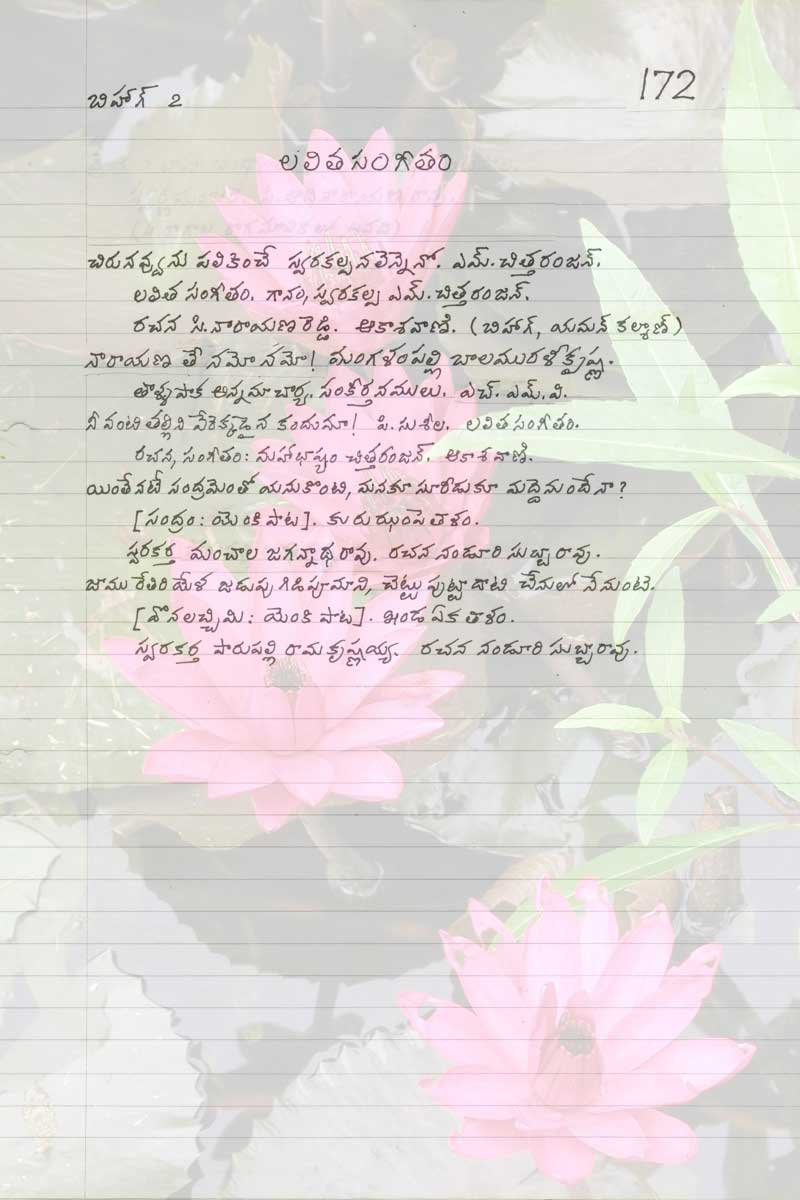 172
బిహాగ్ 2
లలిత సంగీతం
చిరునవ్వును పలికించే స్వరకల్పనలెన్నెనో. ఎమ్. చిత్తరంజన్.
లలిత సంగీతం. గానం, స్వరకల్ప ఎమ్. చిత్తరంజన్.
రచన సి. నారాయణరెడ్డి. ఆకాశవాణి. (బిహాగ్, యమన్ కల్యాణ్)
నారాయణ తే నమో నమో! మంగళంపల్లి బాలమురళీకృష్ణ.
తాళ్ళపాక అన్నమాచార్య. సంకీర్తనములు. ఎచ్. ఎమ్. వి.
నీ వంటి తల్లిని వేరెక్కడైన కందుమా! పి. సుశీల. లలిత సంగీతం.
రచన, సంగీతం: మహాభాష్యం చిత్తరంజన్. ఆకాశవాణి.
యింతేనటే సంద్రమెంతో యనుకొంటి, మనకూ సూరీడుకూ మద్దెనుందేనా?
[సంద్రం: యెంకి పాట]. కురుఝంపె తాళం.
స్వరకర్త మంచాల జగన్నాథరావు. రచన నండూరి సుబ్బారావు.
జాము రేతిరి యేళ జడుపు గిడుపూ మాని, చెట్టు పుట్టా దాటి చేనులో నేనుంటె.
[వొనలచ్చిమి: యెంకి పాట]. ఖండ ఏక తాళం.
స్వరకర్త పారుపల్లి రామకృష్ణయ్య. రచన నండూరి సుబ్బారావు.